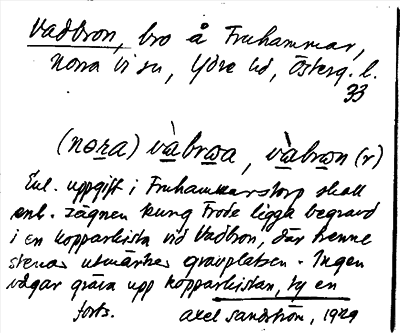 Vadbron, bro å Fruhammar,
Norra Vi sn, Ydre hd, Österg. l.
33
(nora) vàbrωa, vàbrωn (r)
Enl. uppgift i Fruhammarstorp skall
enl. sägnen kung Frode ligga begravd
i en kopparkista vid Vadbron, där tvenne
stenar utmärker gravplatsen. Ingen
vågar gräva upp kopparkistan, ty en
forts. Axel Sandström, 1929